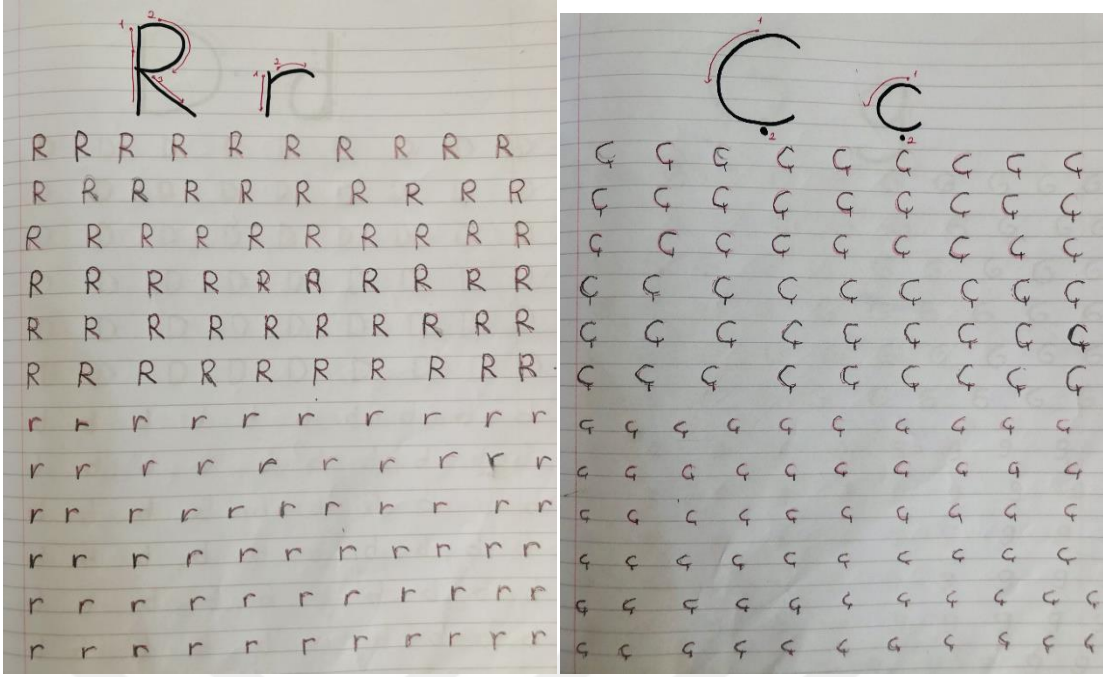 1 2 3 R 1 2 r
R R R R R R R R R R
R R R R R R R R R R
R R R R R R R R R R
R R R R R R R R R R
R R R R R R R R R R
R R R R R R R R R R
r r r r r r r r r r
r r r r r r r r r r
r r r r r r r r r r r
r r r r r r r r r r r
r r r r r r r r r r r
r r r r r r r r r r r
1 Ç 2 1 ç 2
Ç Ç Ç Ç Ç Ç Ç Ç Ç
Ç Ç Ç Ç Ç Ç Ç Ç Ç
Ç Ç Ç Ç Ç Ç Ç Ç Ç
Ç Ç Ç Ç Ç Ç Ç Ç Ç
Ç Ç Ç Ç Ç Ç Ç Ç Ç
Ç Ç Ç Ç Ç Ç Ç Ç Ç
ç ç ç ç ç ç ç ç ç ç
ç ç ç ç ç ç ç ç ç ç
ç ç ç ç ç ç ç ç ç ç
ç ç ç ç ç ç ç ç ç ç
ç ç ç ç ç ç ç ç ç ç ç
ç ç ç ç ç ç ç ç ç ç ç